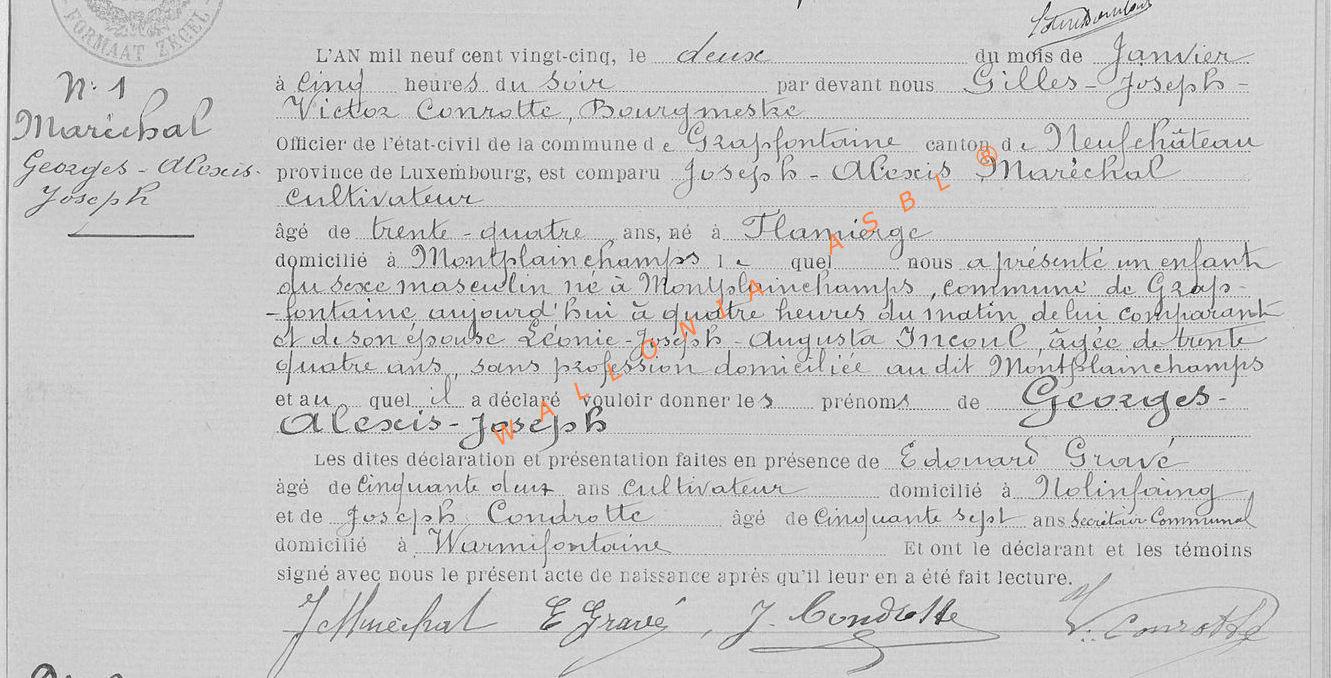 FORMAAT ZEGEL
L'AN mil neuf cent vingt-cinq, le deux du mois de Janvier
à Cinq heures du soir par devant nous Gilles-Joseph-
Victor Conrotte, Bourgmestre
Officier de l'état-civil de la commune de Grapfontaine canton de Neufchâteau
province de Luxembourg, est comparu Joseph-Alexis Maréchal
Cultivateur
âgé de trente-quatre ans, né à Flamierge
domicilié à Montplainchamps le quel nous a présenté un enfant
du sexe masculin né à Montplainchamps, commune de Grap-
-fontaine aujourd'hui à quatre heures du matin de lui comparant
et de son épouse Léonie-Joseph-Augusta Incoul, âgée de trente
quatre ans, sans profession domiciliée au dit Montplainchamps
et au quel il a déclaré vouloir donner les prénoms de Georges-
Alexis-Joseph
Les dites déclaration et présentation faites en présence de Edouard Gravé
âgé de Cinquante deux ans Cultivateur domicilié à Nolinfaing
et de Joseph Condrotte âgé de Cinquante sept ans Secrétaire Communal
domicilié à Warmifontaine Et ont le déclarant et les témoins
signé avec nous le présent acte de naissance après qu'il leur en a été fait lecture.
J Maréchal E Gravé, J. Condrotte V. Conrotte
N: 1
Maréchal
Georges-Alexis-
Joseph
WALLONIA ASBL ®